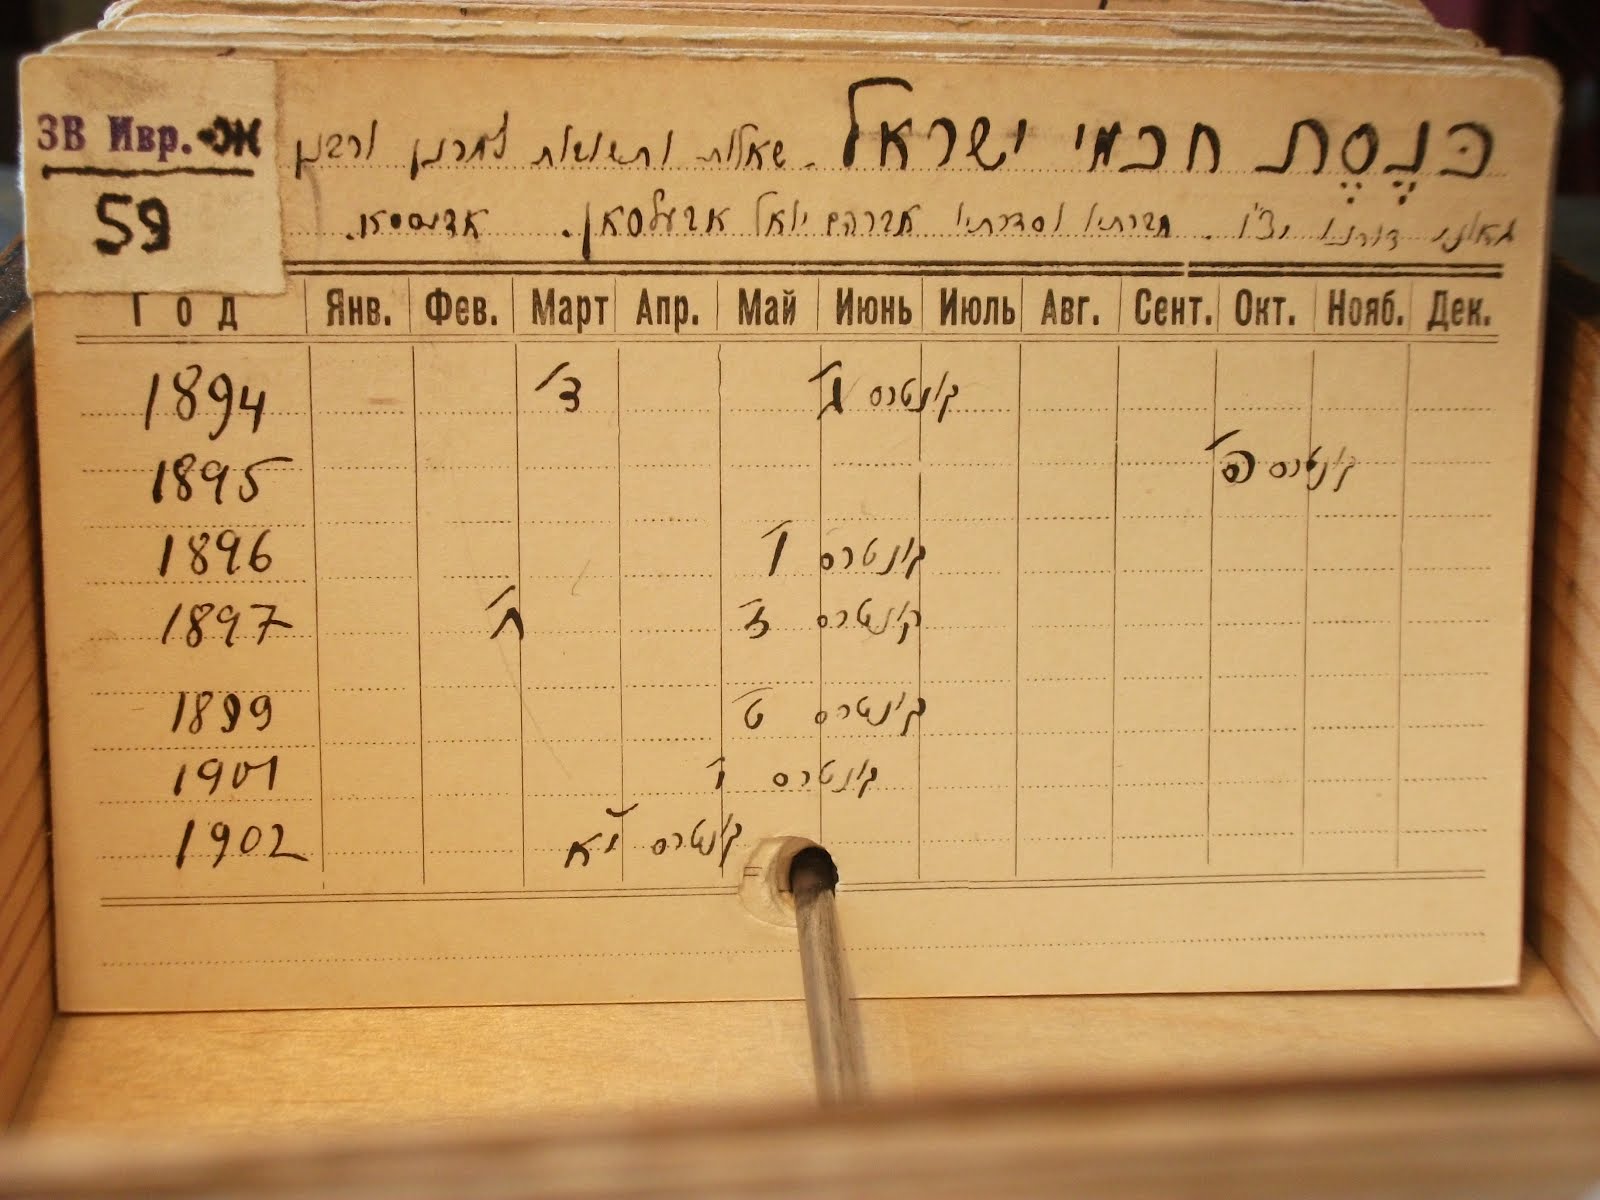 ЗВ Ивр.-Ж
59
כְּנֶסֶת חכמי ישראל. שאלות ותשובות למרנן ורבנן
גאוני דורנו יצ"ו. חברתיו וסדרתיו אברהם יואל אבעלסאן. אדעססא.
Год Янв. Фев. Март Апр. Май Июнь Июль Авг. Сент. Окт. Нояб. Дек.
1894 קונטרס ג' ד'
1895 קונטרס ה'
1896 קונטרס ו'
1897 קונטרס ז' ח'
1899 קונטרס ט'
1901 קונטרס י'
1902 קונטרס י"א